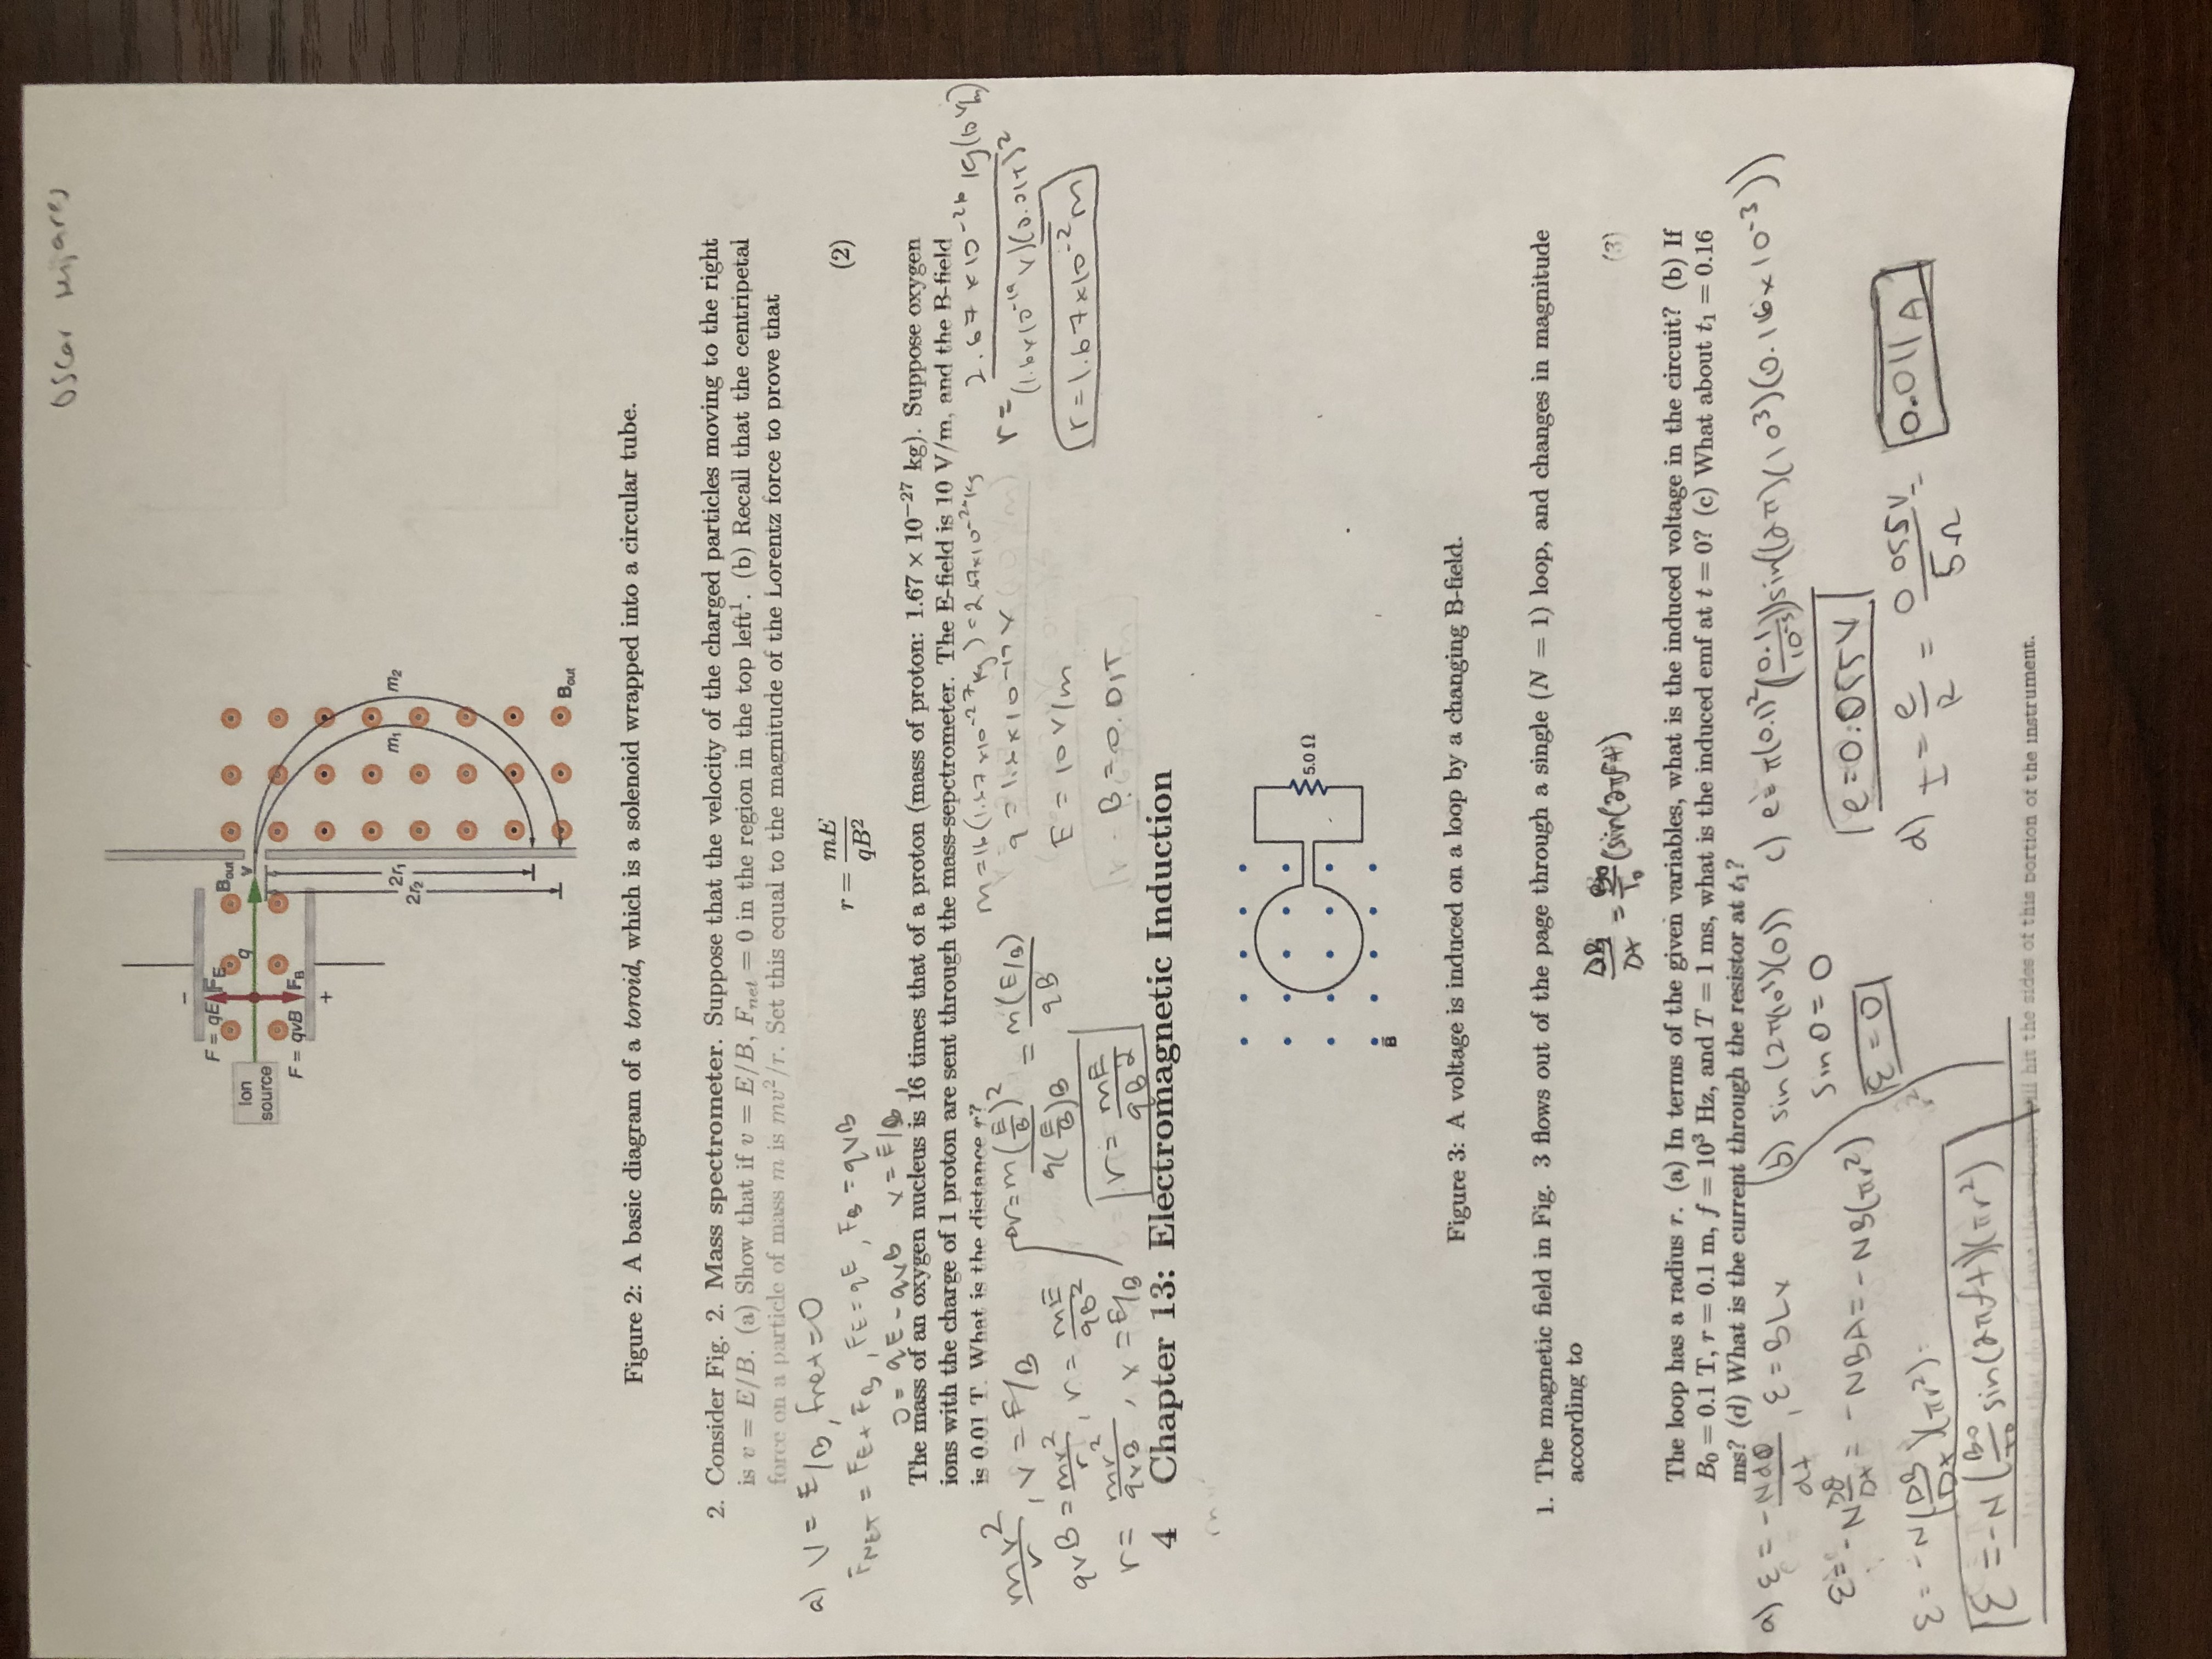 Oscar
−
F = qE FE
Bout
Ion
source
q
v
F = qvB FB
+
2r1
2r2
m1
m2
Bout
Figure 2: A basic diagram of a toroid, which is a solenoid wrapped into a circular tube.
2. Consider Fig. 2. Mass spectrometer. Suppose that the velocity of the charged particles moving to the right
is v = E/B. (a) Show that if v = E/B, Fnet = 0 in the region in the top left¹. (b) Recall that the centripetal
force on a particle of mass m is mv²/r. Set this equal to the magnitude of the Lorentz force to prove that
a) V = E/B, fnet=0
r = mE/qB² (2)
FNET = FE + FB, FE = qE, FB = qvB
0 = qE - qvB v = E/B,
The mass of an oxygen nucleus is 16 times that of a proton (mass of proton: 1.67 × 10−27 kg). Suppose oxygen
ions with the charge of 1 proton are sent through the mass-sepctrometer. The E-field is 10 V/m, and the B-field
is 0.01 T. What is the distance r?
mv²/r, v = E/B
qvB = mv²/r, r = mE/qB²
r = mv²/qvB, v = E/B
r = m(E/B)²/q(E/B)B = m(E/B)/qB
r = mE/qB²
m = 16(1.67 x10-27 kg) = 2.67x10-26 kg
q = 1.6x10-19 V
E = 10 V/m
B = 0.01T
r = 2.67 x10-26 kg(10 V/m)/(1.6x10-19 V)(0.01T)²
r = 1.67x10-2 m
4 Chapter 13: Electromagnetic Induction
5.0 Ω
B
Figure 3: A voltage is induced on a loop by a changing B-field.
1. The magnetic field in Fig. 3 flows out of the page through a single (N = 1) loop, and changes in magnitude
according to
DB/Dt = B0/T0 (sin(2πft) (3)
The loop has a radius r. (a) In terms of the given variables, what is the induced voltage in the circuit? (b) If
B0 = 0.1 T, r = 0.1 m, f = 10³ Hz, and T = 1 ms, what is the induced emf at t = 0? (c) What about t1 = 0.16
ms? (d) What is the current through the resistor at t1?
a) ε = -NdΦ/dt, ε = BLv
ε = -N DΦ/Dt = -NBA = -NB(πr²)
ε = -N(DB/Dt)(πr²)
ε = -N(B0/T0 sin(2πft))(πr²)
(b) sin(2π(10³)(0))
Sin 0 = 0
ε = 0
c) e = π(0.1)²(0.1/10-3)sin((2π)(10³)(0.16x10-3))
e = 0.055V
d) I = e/R = 0.055V/5Ω = 0.011A
¹Molecules that do not have this velocity will hit the sides of this portion of the instrument.